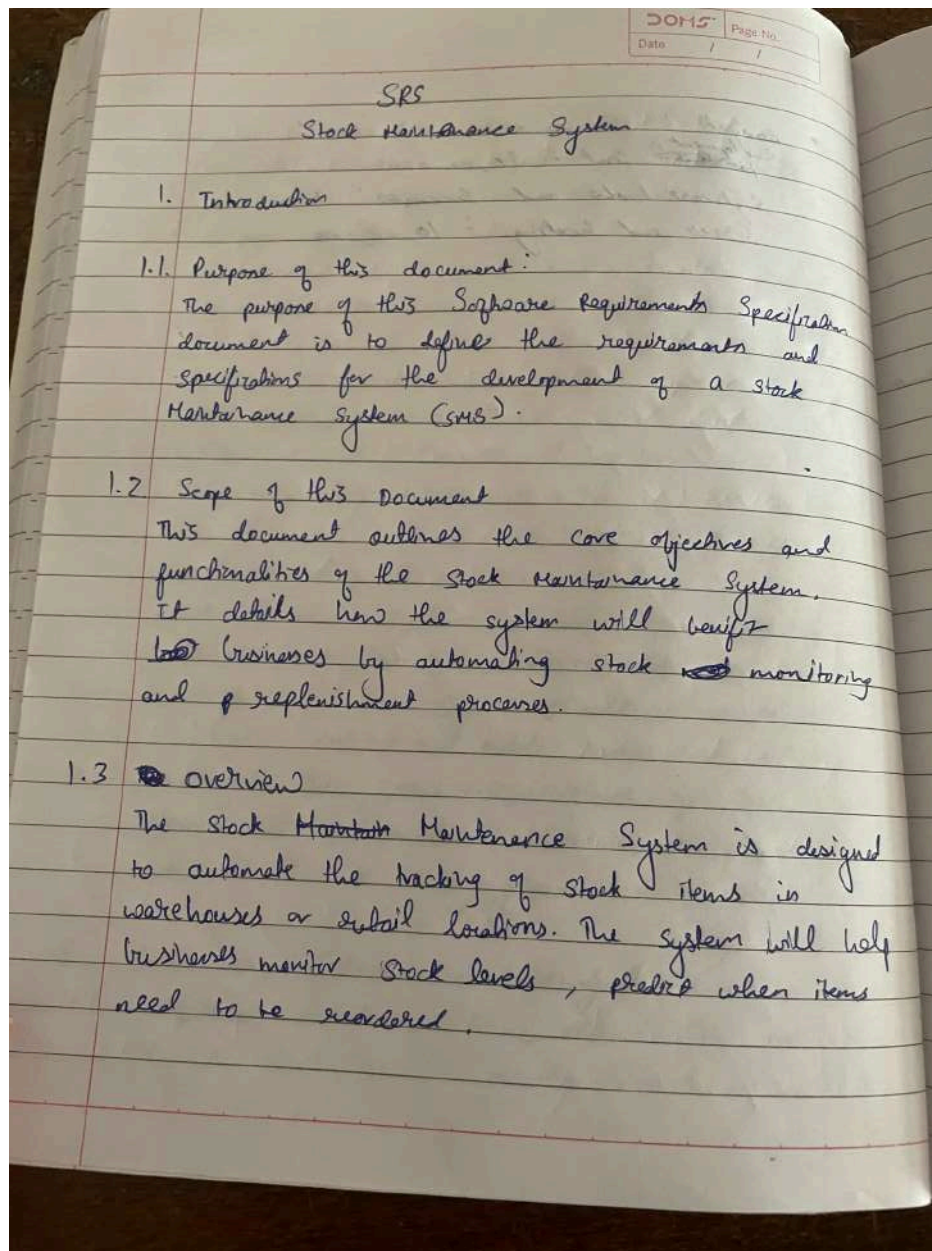 DOMS
Page No.
Date / /
SRS
Stock Maintenance System
1. Introduction
1.1. Purpose of this document:
The purpose of this Software Requirements Specification
document is to define the requirements and
specifications for the development of a stock
Maintainance System (SMS).
1.2 Scope of this Document
This document outlines the core objectives and
functionalities of the Stock Maintainance System.
It details how the system will benifit
businesses by automating stock monitoring
and replenishment processes.
1.3 overview
The Stock Maintain Maintenence System is designed
to automate the tracking of Stock items in
warehouses or retail locations. The system will help
businesses monitor Stock levels, predict when items
need to be reordered.